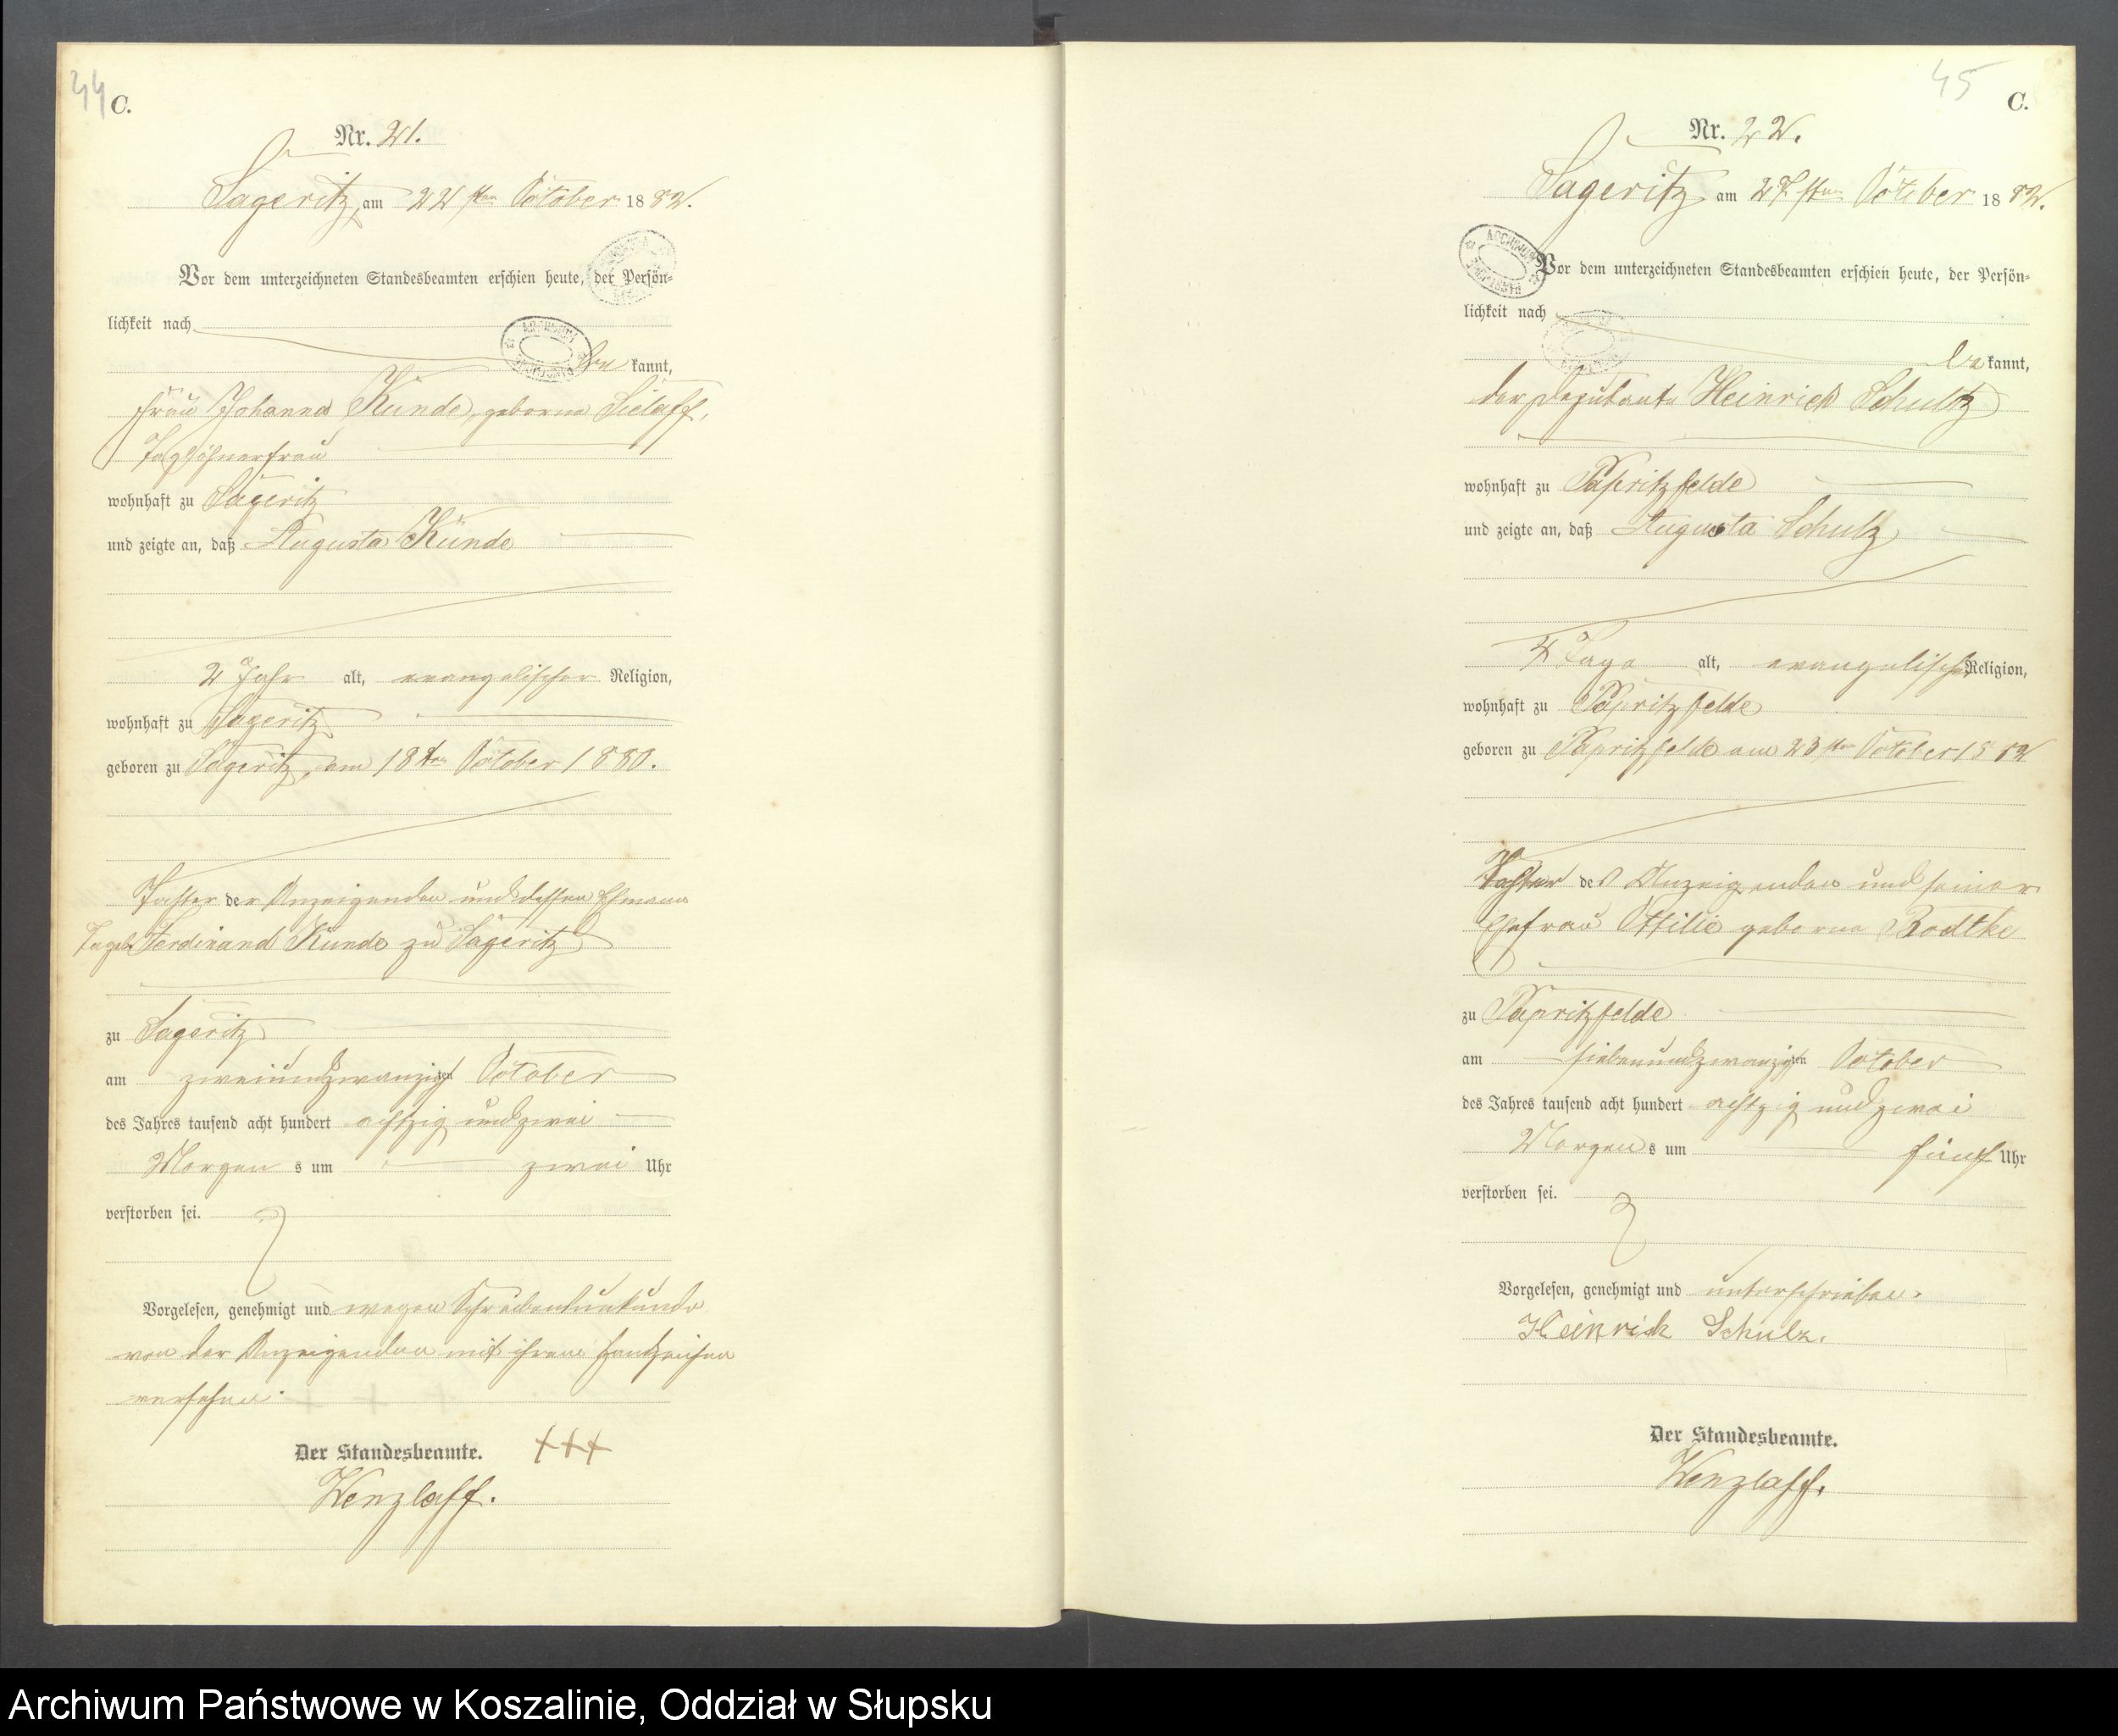 44
C.
Nr. 21.
Sageritz, am 22 ten October 1882.
Vor dem unterzeichneten Standesbeamten erschien heute, der Persön-
lichkeit nach
be kannt,
Frau Johanna Künde, geborne Sielaff,
Taglöhnerfrau
wohnhaft zu Sageritz
und zeigte an, daß Augusta Künde
2 Jahr alt, evangelischer Religion,
wohnhaft zu Sageritz
geboren zu Sageritz, am 18ten October 1880.
Tochter der Anzeigenden und dessen Ehmann
Tagel. Ferdinand Kunde zu Sageritz
zu Sageritz
am zweiundzwanzigsten October
des Jahres tausend acht hundert achtzig und zwei
Morgen s um zwei Uhr
verstorben sei.
Vorgelesen, genehmigt und wegen Schreibensunkunde
von der Anzeigenden mit ihrem Handzeichen
versehen.
Der Standesbeamte. +++
Wenzlaff.
45
C.
Nr. 22.
Sageritz am 27 ten October 1882.
Vor dem unterzeichneten Standesbeamten erschien heute, der Persön-
lichkeit nach
be kannt,
der Deputante Heinrich Schultz
wohnhaft zu Papritzfelde
und zeigte an, daß Augusta Schulz
4 Tage alt, evangelischer Religion,
wohnhaft zu Papritzfelde
geboren zu Papritzfelde am 23 ten October 1882
Tochter des Anzeigenden und seiner
Ehefrau Ottilie geborne Radtke
zu Papritzfelde
am siebenundzwanzigsten October
des Jahres tausend acht hundert achtzig und zwei
Morgen s um fünf Uhr
verstorben sei.
Vorgelesen, genehmigt und unterschrieben.
Heinrich Schulz.
Der Standesbeamte.
Wenzlaff.
Archiwum Państwowe w Koszalinie, Oddział w Słupsku